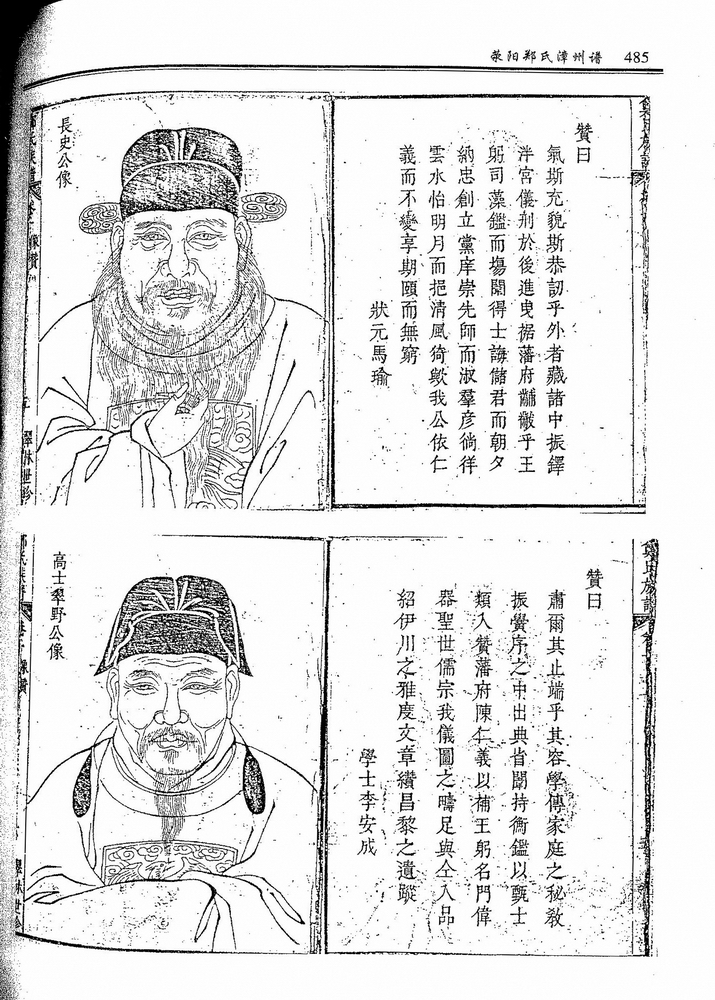 荥阳郑氏漳州谱 485
贊曰
氣斯充貌斯恭訒乎外者藏諸中振鐸
泮宮儀刑於後進曳裾藩府黼黻乎王
躬司藻鑑而場闢得士誨儲君而朝夕
納忠創立黨庠崇先師而淑羣彥徜徉
雲水怡明月而挹清風猗歟我公依仁
義而不變享期頤而無窮
狀元馬瑜
長史公像
贊曰
肅爾其止端乎其容學傳家庭之秘教
振黌序之中出典省闈持衡鑑以甄士
類入贊藩府陳仁義以補王躬名門偉
器聖世儒宗我儀圖之疇足與仝入品
紹伊川之雅度文章纘昌黎之遺蹤
學士李安成
高士翠野公像